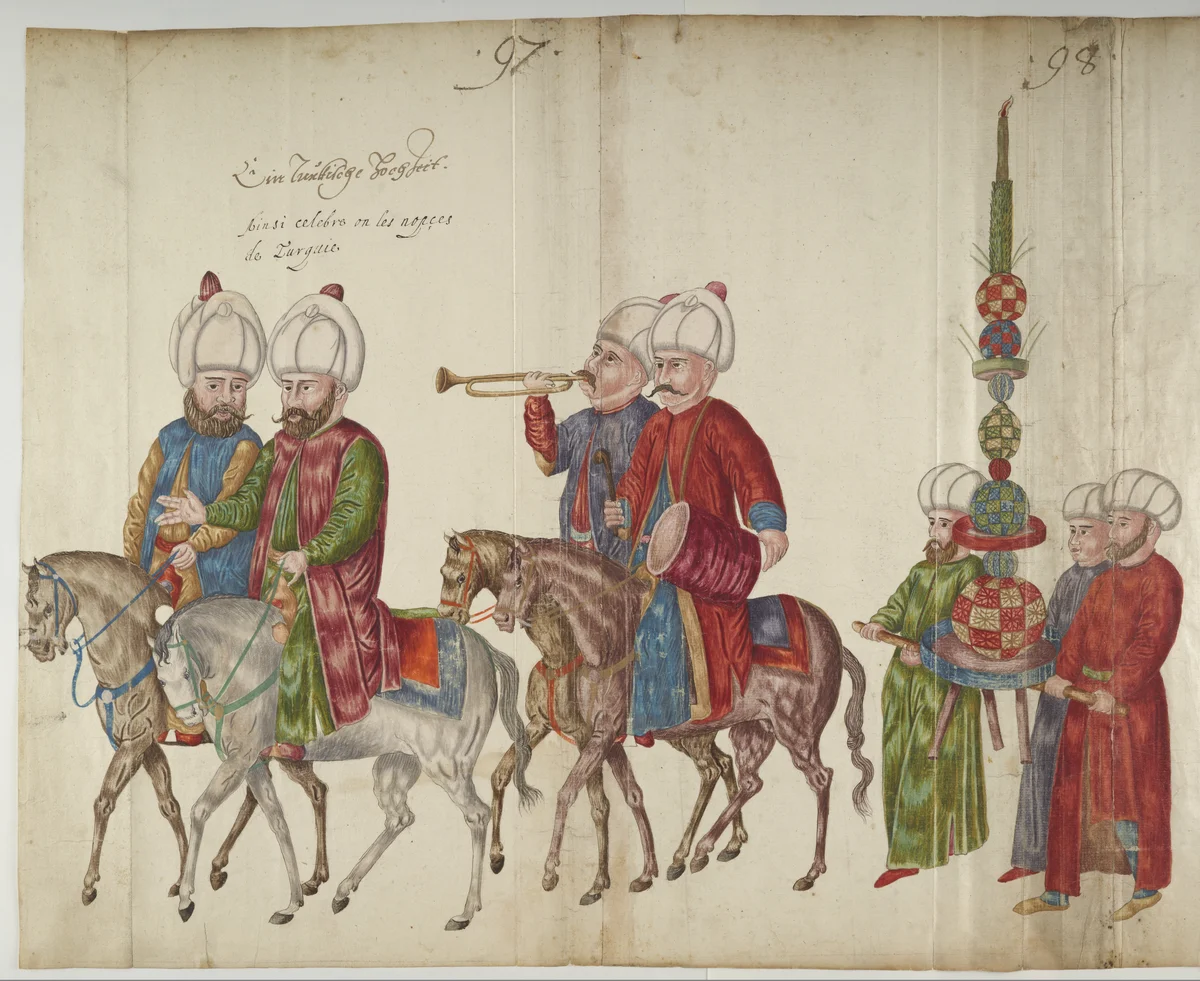 97.
98
Ein Türkische Hochzeit.
Ainsi celebre on les nopçes
de Turquie